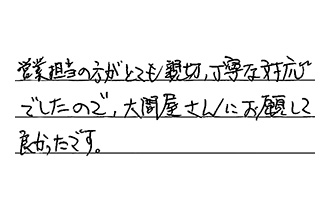 営業担当の方がとても親切、丁寧な対応
でしたので、大問屋さんにお願して
良かったです。